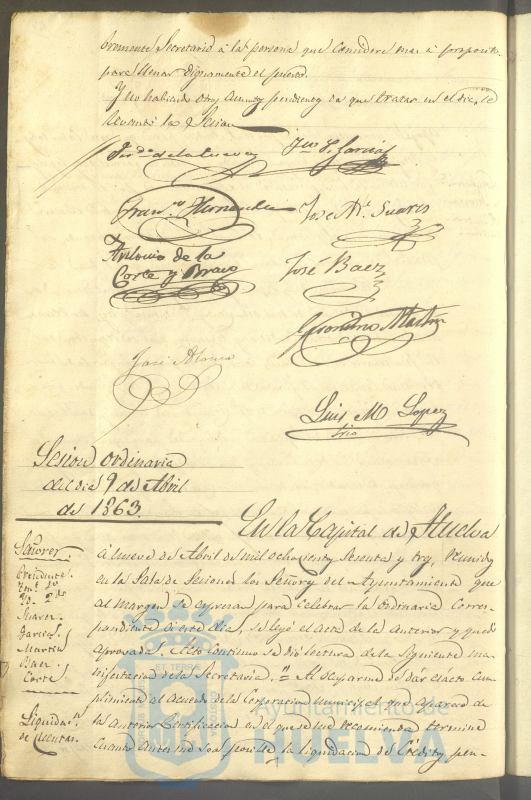 Secretario á la persona que considere mas á proposito
para llenar dignamente el puesto.
Y no habiendo otros asuntos pendientes de que tratar en el dia, se
levantó la Sesion
Jose Ml. Suares
Antonio de la
Corte y Bravo
José Baez
Geronimo Martin
José Alonso
Luis M Lopez
Srio
Sesion ordinaria
del dia 9 de Abril
de 1863.
En la Capital de Huelva
á nueve de Abril de mil ochocientos sesenta y tres, reunidos
en la Sala de Sesiones los Señores del Ayuntamiento que
al margen se espresan para celebrar la ordinaria corres-
pondiente á este dia, se leyó el acta de la anterior y quedó
aprovada. Acto continuo se dió lectura de la siguiente ma-
nifestacion de la Secretaria. "Al ocuparme de dár exacto cum-
plimiento al Acuerdo de la Corporacion municipal que aparece de
la anterior Certificacion en el que se me recomienda termine
cuanto antes me sea posible la liquidacion de Creditos pen-
Señores
Presidente
Suares
Garcia
Martin
Baez
Corte
Liquidan.
de Cuentas.
Ayuntamiento de
HUELVA